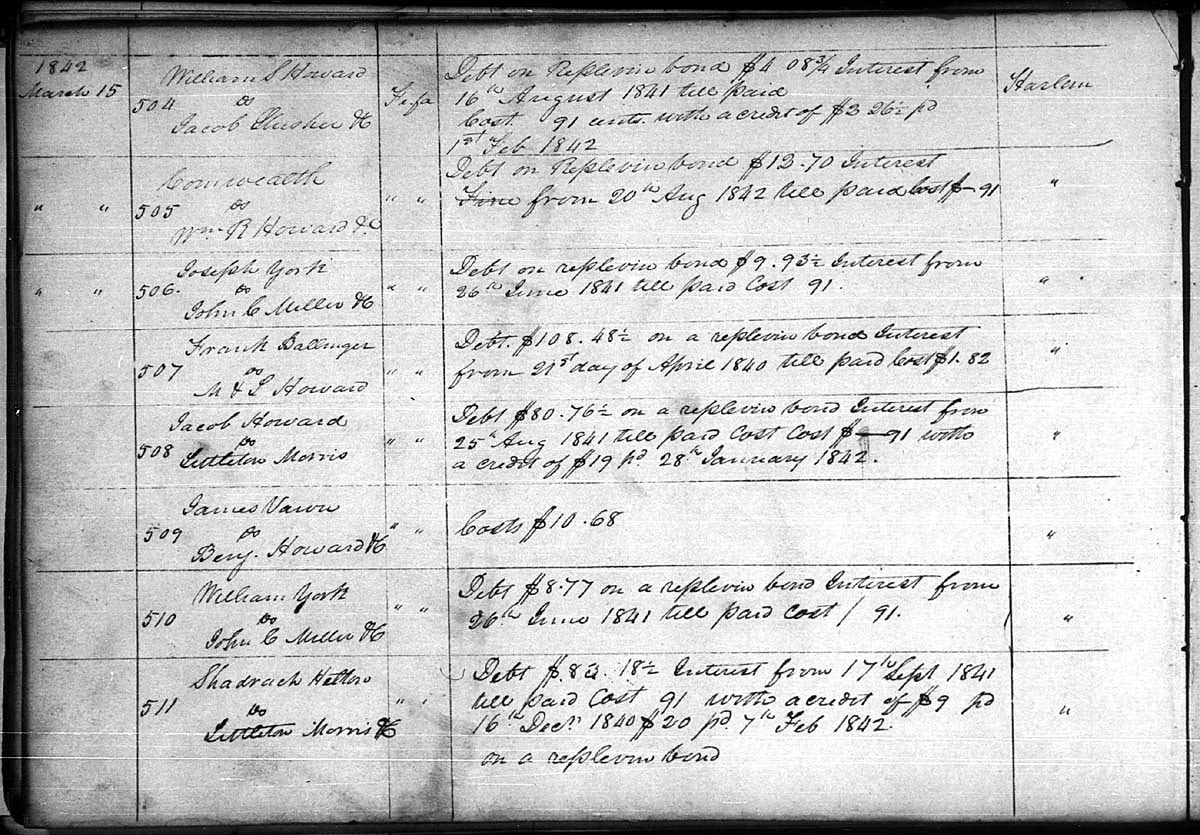 1842
March 15
504
William S Howard
vs
Jacob Slusher &C
Fi fa
Debt on Replevin bond $4 08¾ Interest from
16th August 1841 till paid
Cost. 91 cents. with a credit of $3 26½ pd
1st Feb 1842
Harlem
" "
505
Comwealth
vs
Wm R Howard &C
" "
Debt on Replevin bond $13.70 Interest
Fine from 20th Aug 1842 till paid Cost $-91
"
" "
506.
Joseph York
vs
John C Miller &C
" "
Debt on replevin bond $9.93½ Interest from
26th June 1841 till paid Cost 91.
"
507
Frank Ballinger
vs
M & L Howard
" "
Debt. $108.48½ on a replevin bond Interest
from 21st day of April 1840 till paid Cost $1.82
"
508
Jacob Howard
vs
Littleton Morris
" "
Debt $80.76½ on a replevin bond Interest from
25th Aug 1841 till paid Cost Cost $—91 with
a credit of $19 pd 28th January 1842.
"
509
James Vawn
vs
Benj. Howard &C
" "
Costs $10.68
"
510
William York
vs
John C Miller &C
" "
Debt $8.77 on a replevin bond Interest from
26th June 1841 till paid Cost / 91.
"
511
Shadrach Helton
vs
Littleton Morris &C
" "
Debt $83.18½ Interest from 17th Sept 1841
till paid Cost 91 with a credit of $9 pd
16th Decr 1840 $20 pd 7th Feb 1842.
on a replevin bond
"